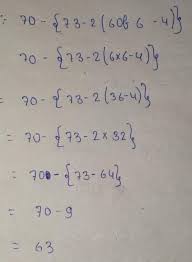 ∵ 70 - {73 - 2 (6 of 6 - 4)}
70 - {73 - 2 (6×6-4)}
= 70 - {73 - 2 (36-4)}
= 70 - {73 - 2 × 32}
= 70 - {73 - 64}
= 70 - 9
= 63